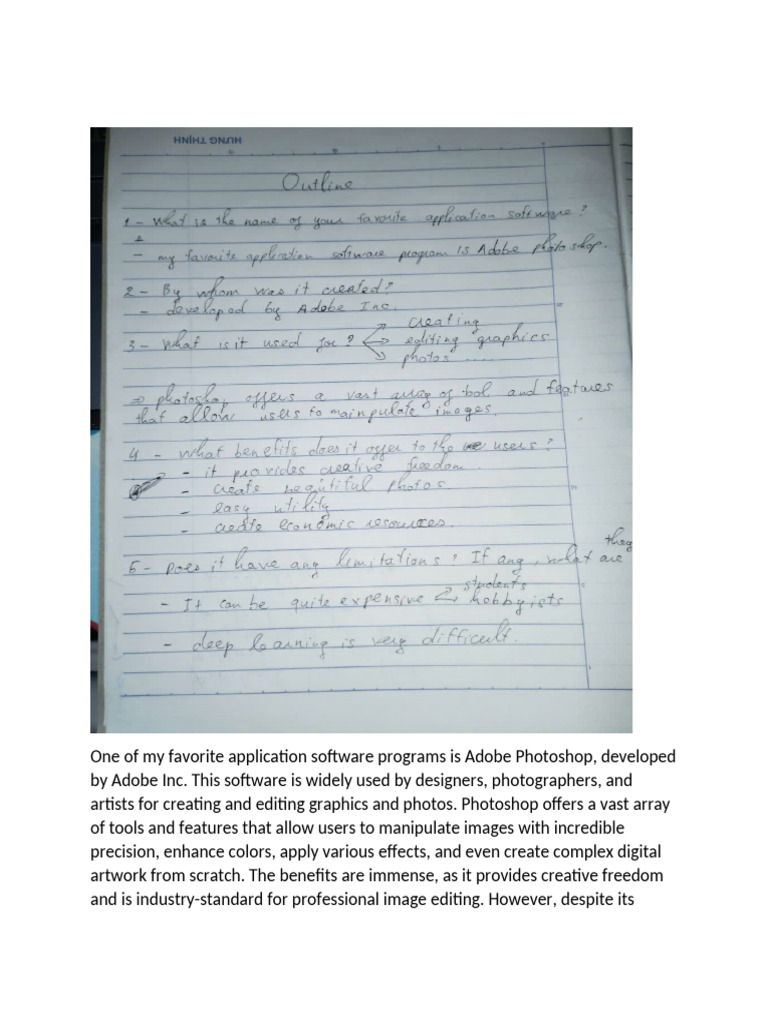 HƯNG THỊNH
Outline
1 - What is the name of your favorite application software?
2
- my favorite application software program is Adobe photoshop.
2 - By whom was it created?
- developed by Adobe Inc.
3 - What is it used for?
creating
editing graphics
photos .....
=> photoshop offers a vast array of tool and features
that allow users to mainpulate images.
4 - what benefits does it offer to the users?
- it provides creative freedom
- create beautiful photos
- easy utility
- create economic resources.
5 - Does it have any limitations? If any, what are they
- It can be quite expensive
students
hobbyists
- deep learning is very difficult.
One of my favorite application software programs is Adobe Photoshop, developed
by Adobe Inc. This software is widely used by designers, photographers, and
artists for creating and editing graphics and photos. Photoshop offers a vast array
of tools and features that allow users to manipulate images with incredible
precision, enhance colors, apply various effects, and even create complex digital
artwork from scratch. The benefits are immense, as it provides creative freedom
and is industry-standard for professional image editing. However, despite its